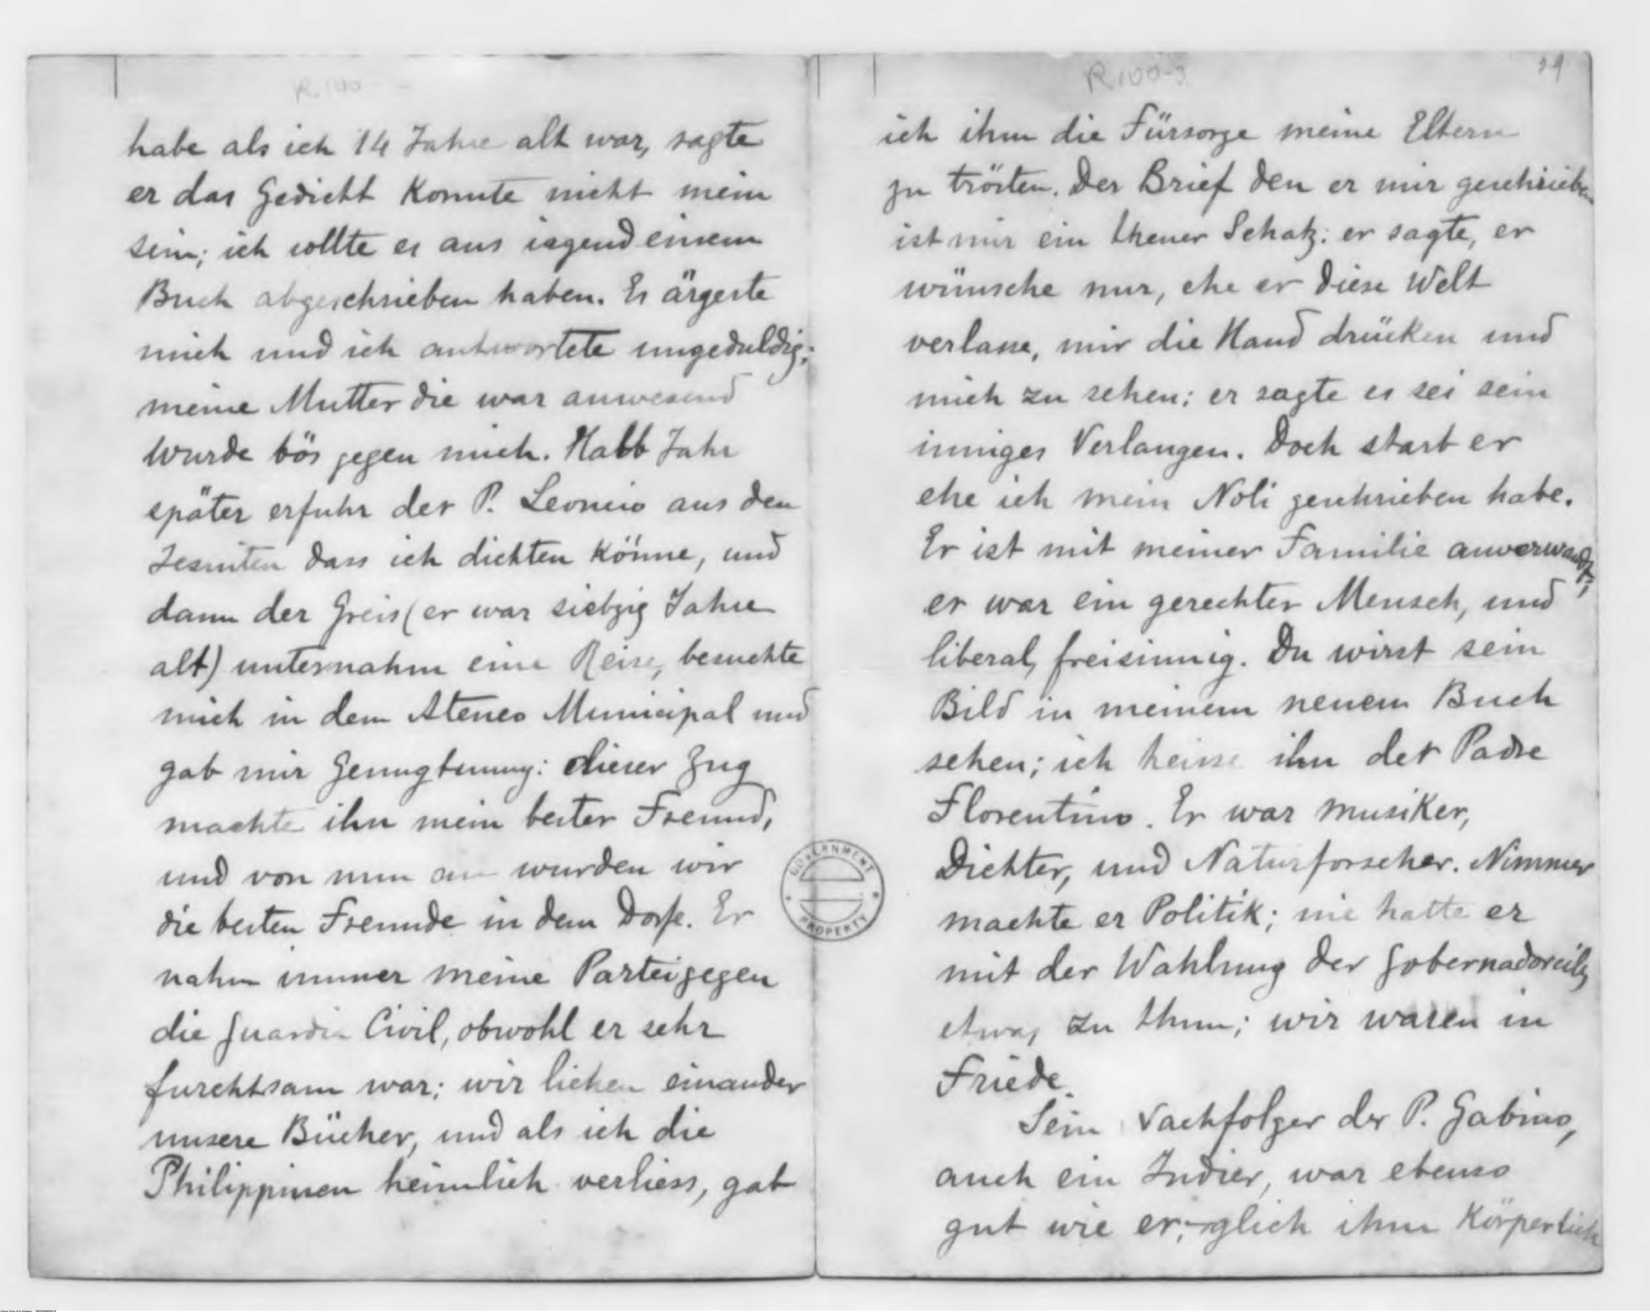 R. 100
habe als ich 14 Jahre alt war, sagte
er das Gedicht konnte nicht mein
sein; ich sollte es aus irgend einem
Buch abgeschrieben haben. Es ärgerte
mich und ich antwortete ungeduldig;
meine Mutter die war anwesend
wurde bös gegen mich. Halb Jahr
später erfuhr der P. Leoncio aus den
Jesuiten dass ich dichten könne, und
dann der Greis (er war siebzig Jahre
alt) unternahm eine Reise, besuchte
mich in dem Ateneo Municipal und
gab mir Genugtuung: dieser Zug
machte ihn mein bester Freund,
und von nun an wurden wir
die besten Freunde in dem Dorfe. Er
nahm immer meine Partei gegen
die Guardia Civil, obwohl er sehr
furchtsam war; wir liehen einander
unsere Bücher, und als ich die
Philippinen heimlich verliess, gab
R. 100-3
29
ich ihm die Fürsorge meine Eltern
zu trösten. Der Brief den er mir geschrieben
ist mir ein theuer Schatz: er sagte, er
wünsche nur, ehe er diese Welt
verlasse, mir die Hand drücken und
mich zu sehen; er sagte es sei sein
inniges Verlangen. Doch starb er
ehe ich mein Noli geschrieben habe.
Er ist mit meiner Familie anverwandt;
er war ein gerechter Mensch, und
liberal, freisinnig. Du wirst sein
Bild in meinem neuen Buch
sehen; ich heisse ihn der Padre
Florentino. Er war Musiker,
Dichter, und Naturforscher. Nimmer
machte er Politik; nie hatte er
mit der Wahlung der
etwas zu thun; wir waren in
Friede.
Sein Nachfolger der P. Gabino,
auch ein Indier, war ebenso
gut wie er; glich ihm körperlich
GOVERNMENT PROPERTY